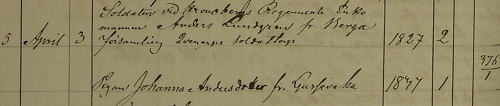 Soldaten vid Kronobergs Regemente Enke
mannen Anders Lundgren fr. Berga
5 April 3 Qvenarps soldattorp 1827 2
376
1
Pigan Johanna Andersdotter fr. 1847 1